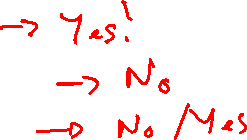 → Yes!
→ No
→ No / Yes